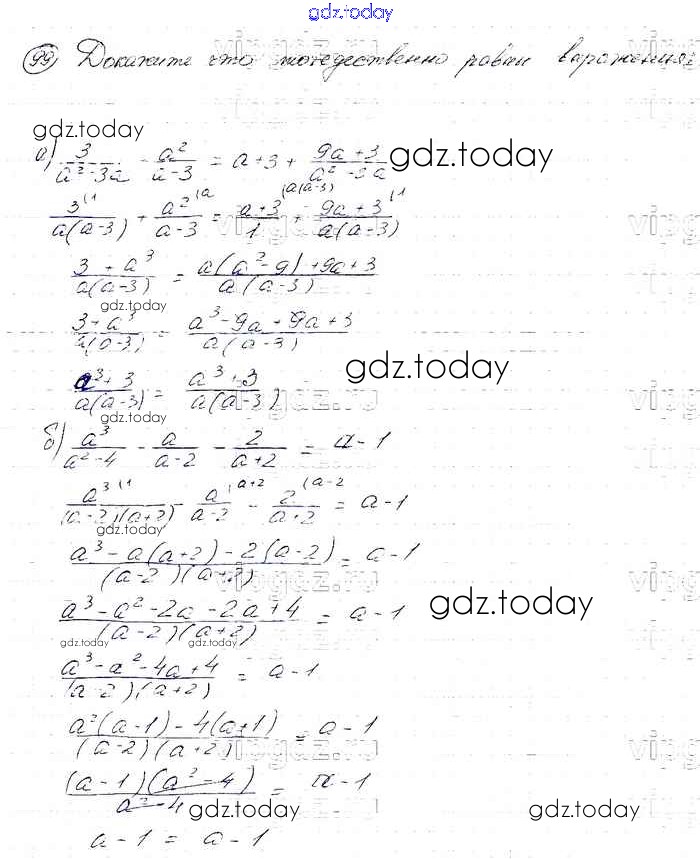 gdz.today
99) Докажите что тождественно равны выражения:
gdz.today
а) 3/(a²-3a) - a²/(a-3) = a+3 + (9a+3)/(a²-3a) gdz.today
3⁽¹/(a(a-3)) + a²⁽ᵃ/(a-3) = (a+3)/1 ⁽ᵃ⁽ᵃ⁻³⁾ + (9a+3)⁽¹/(a(a-3))
(3+a³)/(a(a-3)) = (a(a²-9)+9a+3)/(a(a-3))
gdz.today
(3+a³)/(a(a-3)) = (a³-9a+9a+3)/(a(a-3))
gdz.today
(a³+3)/(a(a-3)) = (a³+3)/(a(a-3))
gdz.today
б) a³/(a²-4) - a/(a-2) - 2/(a+2) = a-1
a³⁽¹/((a-2)(a+2)) - a⁽ᵃ⁺²/(a-2) - 2⁽ᵃ⁻²/(a+2) = a-1
gdz.today
(a³-a(a+2)-2(a-2))/((a-2)(a+2)) = a-1
(a³-a²-2a-2a+4)/((a-2)(a+2)) = a-1 gdz.today
gdz.today gdz.today
(a³-a²-4a+4)/((a-2)(a+2)) = a-1
(a²(a-1)-4(a+1))/((a-2)(a+2)) = a-1
((a-1)(a²-4))/(a²-4) = a-1
gdz.today gdz.today
a-1 = a-1